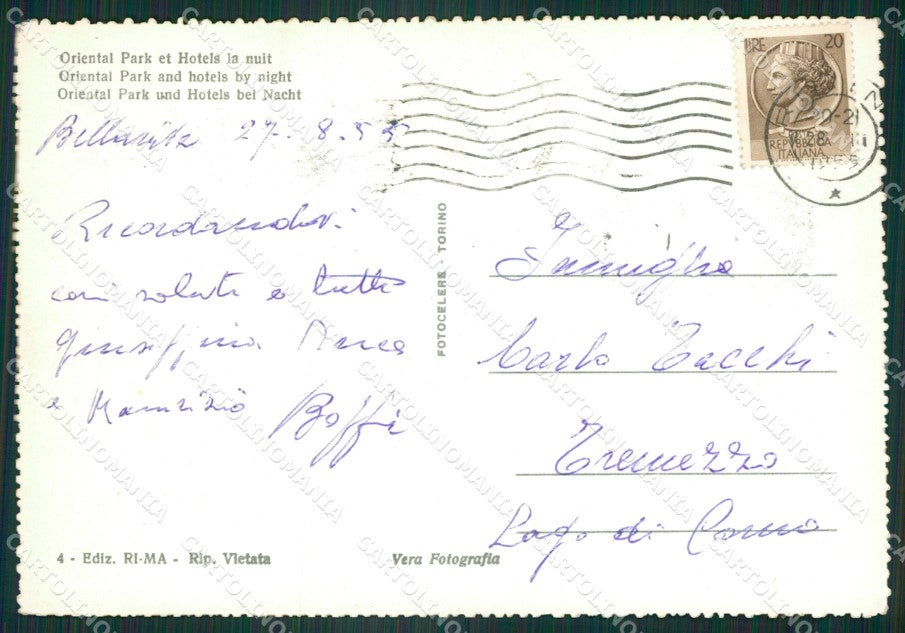 Oriental Park et Hotels la nuit
Oriental Park and hotels by night
Oriental Park und Hotels bei Nacht
27-8.55
Ricordandovi
cari saluti a tutti
Giuseffina Anna
e Maurizio Boffi
FOTOCELERE - TORINO
LIRE 20
REPVBBLICA
ITALIANA
Famiglia
Carlo Tacchi
Tremezzo
Lago di Como
4 - Ediz. RI-MA - Rip. Vietata
Vera Fotografia
CARTOLINOMANIA